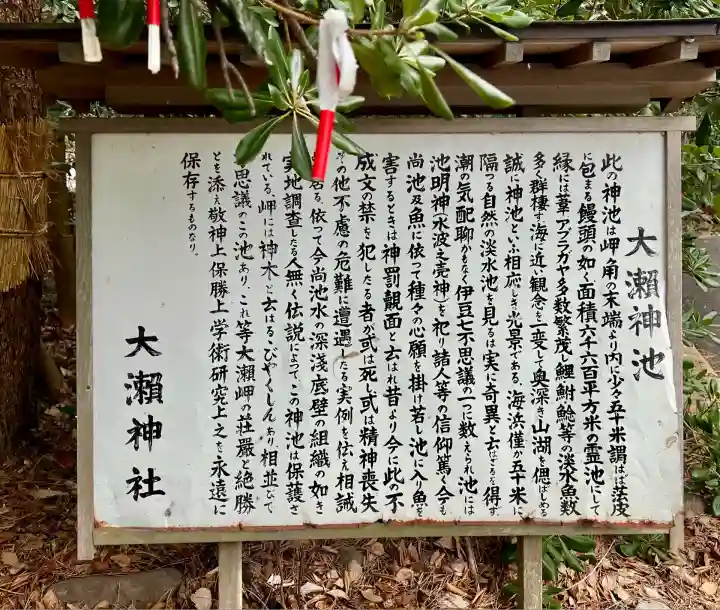 大瀬神池
此の神池は岬一角の末端より内に少々五十米謂はば茫皮
に包まる饅頭の如く面積六千六百平方米の霊池にして
縁には葦アブラガヤ多数繁茂し鯉鮒鯰等の淡水魚数
多く群棲す海に近い観念を一変して奥深き山湖を偲ばしめる
誠に神池といふ相応しき光景である、海浜僅か五十米に
隔つる自然の淡水池を見るは実に奇異と云はざるを得ず
潮の気配聊かもなく伊豆七不思議の一つに数えられ池には
池明神(水波之売神)を祀り諸人等の信仰篤く今も
尚池及魚に依って種々の心願を掛け若し池に入り魚を
害するときは神罰覿面と云はれ昔より今に此の不
成文の禁を犯したる者が或は死し或は精神喪失
その他不慮の危難に遭遇したる実例を伝え相誡
居る、依って今尚池水の深浅、底壁の組織の如き
実地調査したる人無く伝説によってこの神池は保護さ
れている、岬には神木と云はるびやくしんあり、相並びて
思議のこの池あり、これ等大瀬岬の荘厳と絶勝
とを添え敬神上保勝上学術研究上之を永遠に
保存するものなり。
大瀬神社